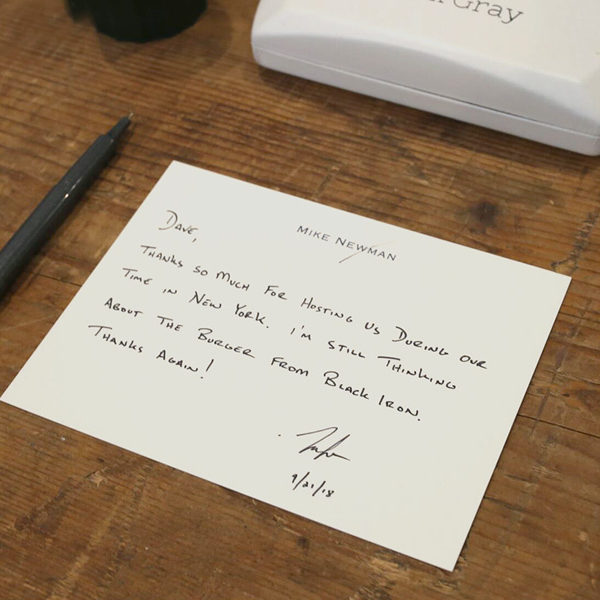 Gray
MIKE NEWMAN
DAVE,
THANKS SO MUCH FOR HOSTING US DURING OUR
TIME IN NEW YORK. I'M STILL THINKING
ABOUT THE BURGER FROM BLACK IRON.
THANKS AGAIN!
9/21/18